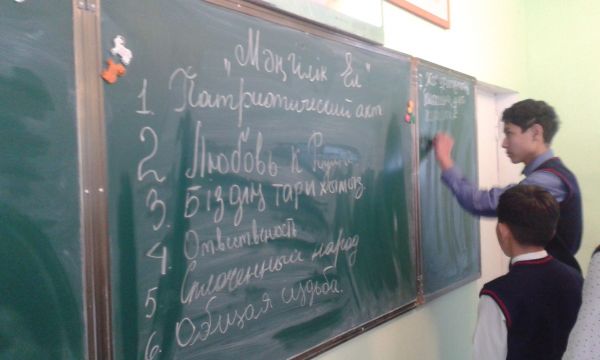 "Мәңгілік Ел"
1. Патриотический акт
2 Любовь к Родине
3. Біздің тарихымыз.
4. Ответственность
5. Сплоченный народ
6. Общая судьба.